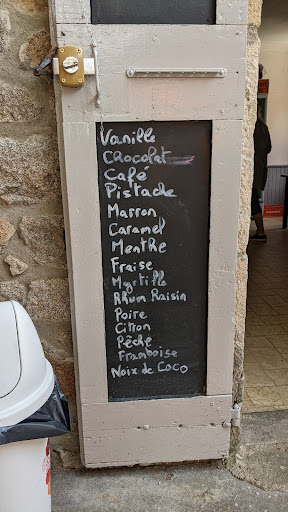 Vanille
Chocolat
Café
Pistache
Marron
Caramel
Menthe
Fraise
Myrtille
Rhum Raisin
Poire
Citron
Pêche
Framboise
Noix de Coco